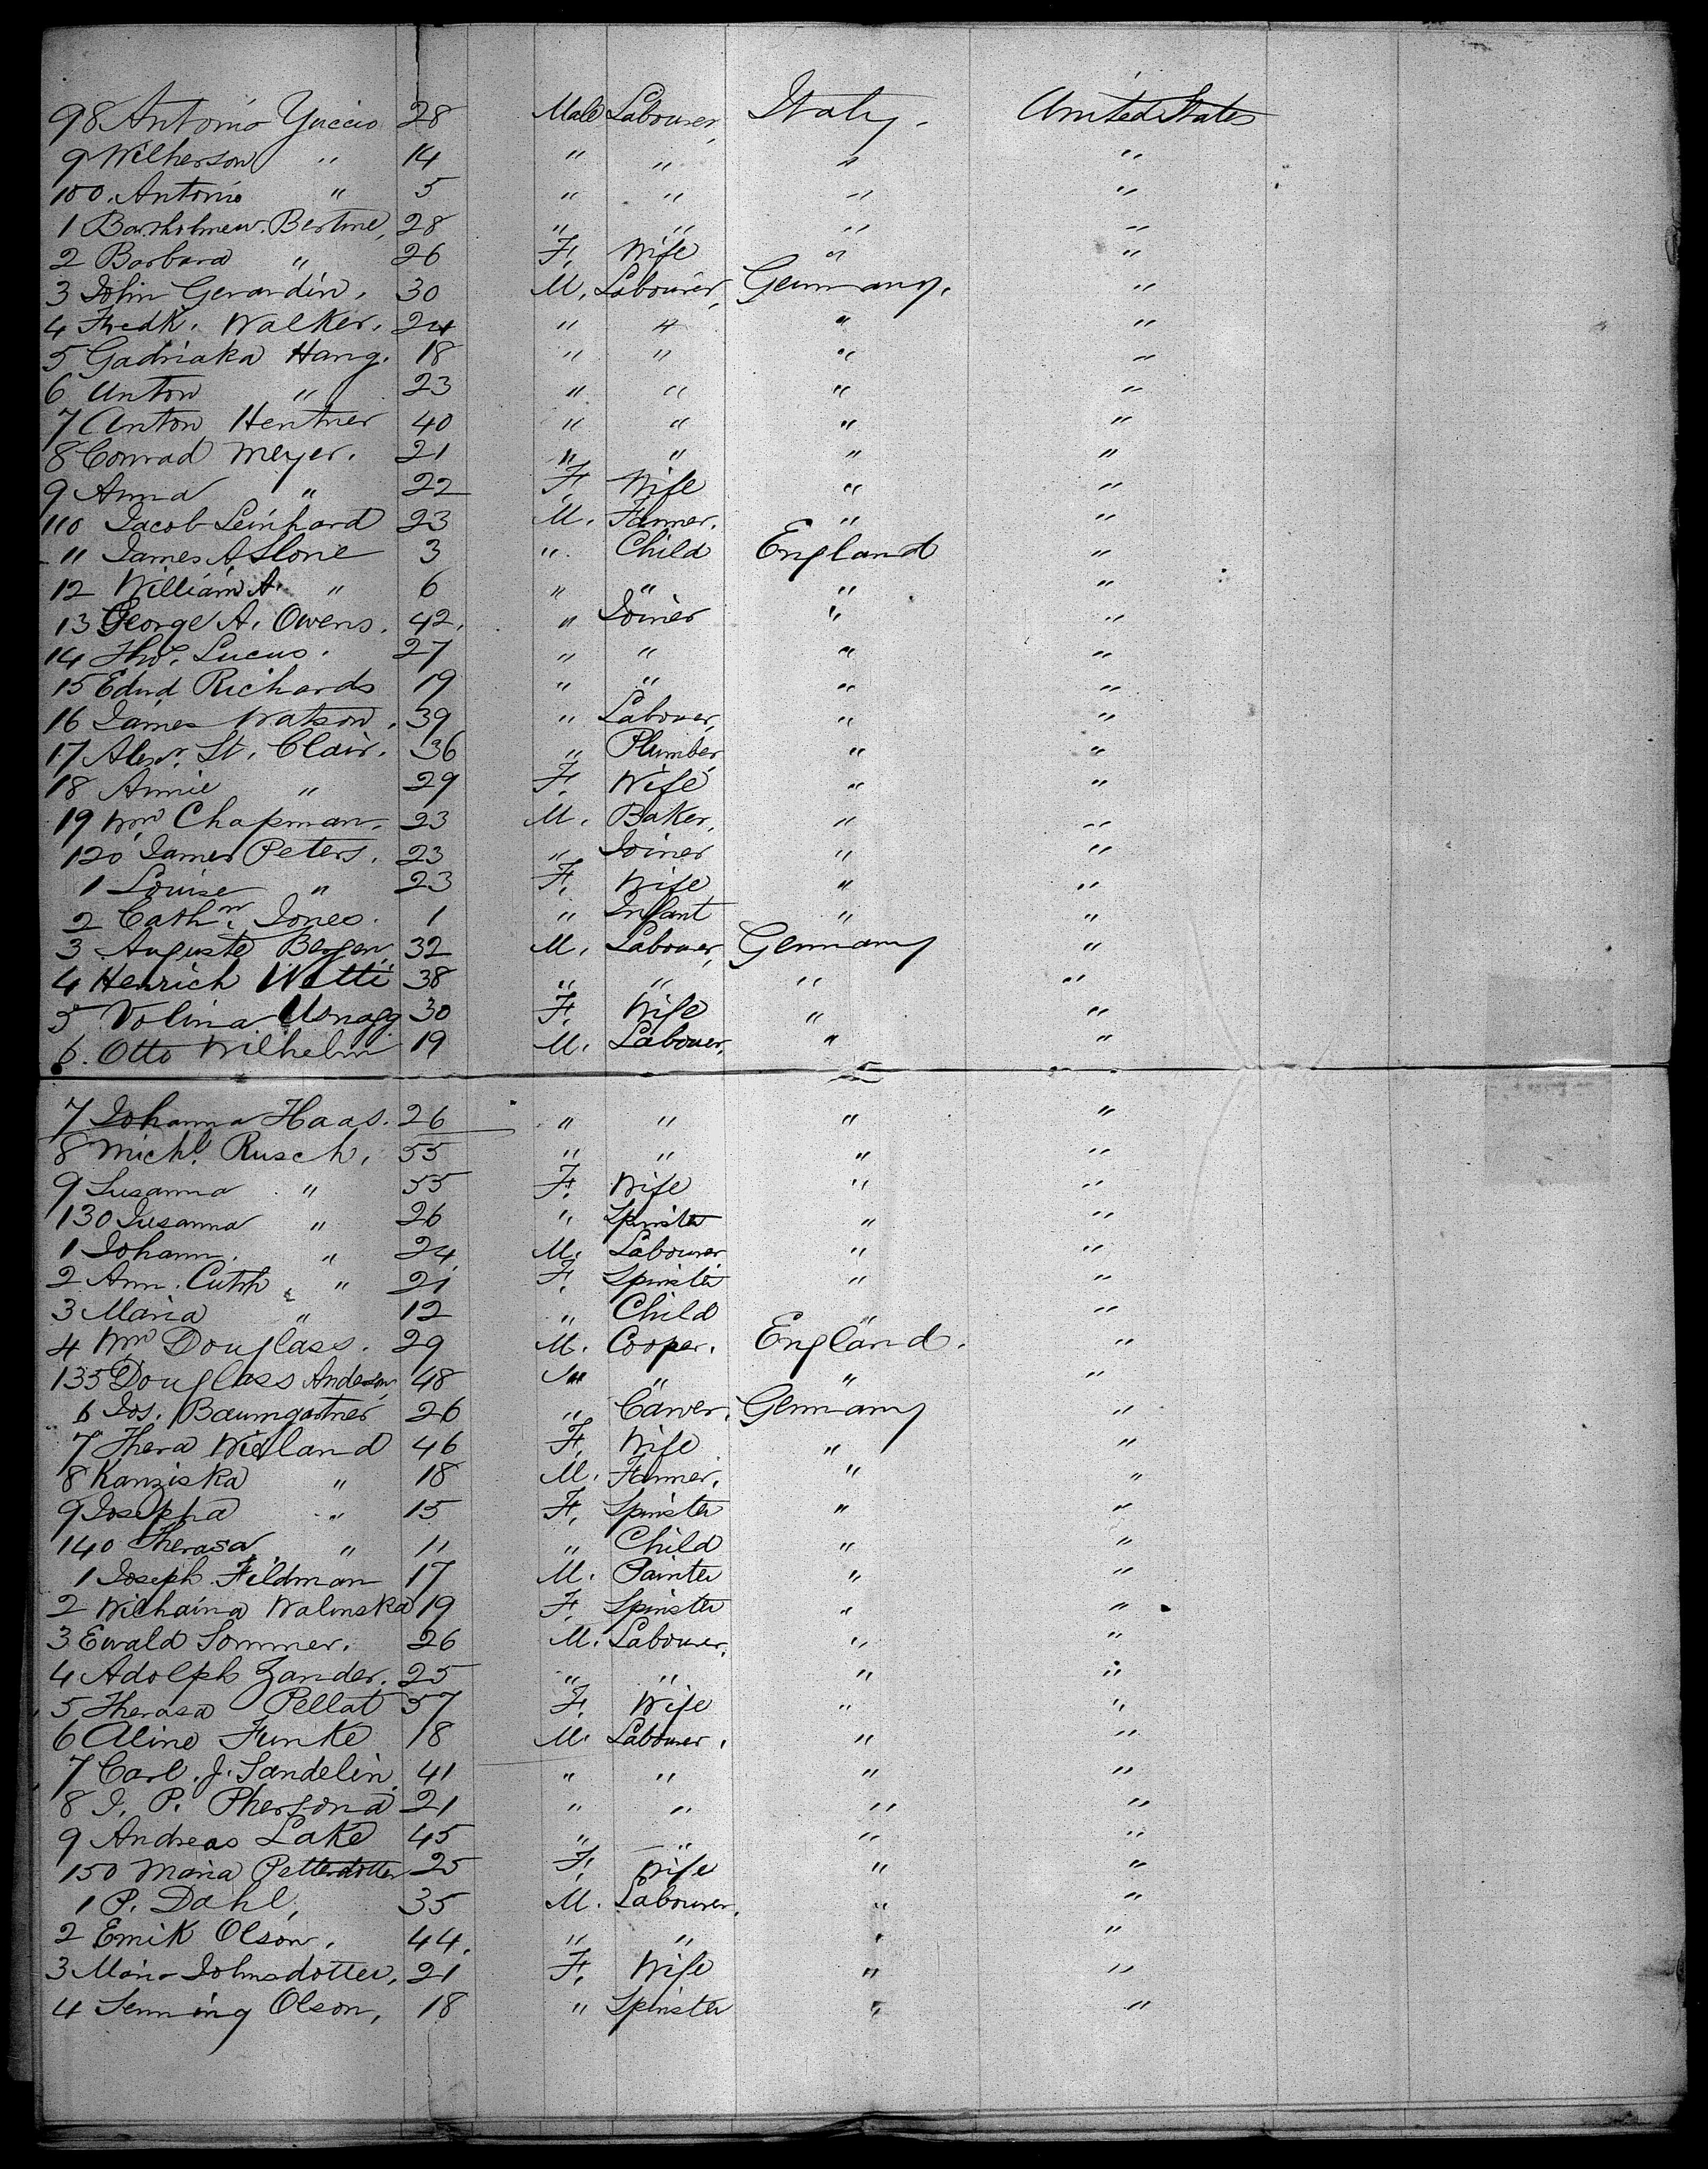 98 Antonio Yuccio 28 Male Labourer, Italy. United States
9 Wilherson " 14 " " " "
100. Antonio " 5 " " " "
1 Bartholmew. Bertine, 28 " " " "
2 Barbara " 26 F. Wife " "
3 John Gerardin. 30 M. Labourer, Germany. "
4 Fredk. Walker. 24 " " " "
5 Gadriaka Hang. 18 " " " "
6 Anton " 23 " " " "
7 Anton Hentner 40 " " " "
8 Conrad Meyer. 21 " " " "
9 Anna " 22 F. Wife " "
110 Jacob Leinhard 23 M. Farmer. " "
11 James A Slone 3 " Child England "
12 William A. " 6 " " " "
13 George A. Owens. 42. " Joiner " "
14 Thos. Lucus. 27 " " " "
15 Edwd Richards 19 " " " "
16 James Watson. 39 " Labouer, " "
17 Alexr. St. Clair. 36 " Plumber, " "
18 Annie " 29 F. Wife " "
19 Wm Chapman. 23 M. Baker, " "
120 James Peters. 23 " Joiner " "
1 Louise " 23 F. Wife " "
2 Cathne. Jones. 1 " Infant " "
3 Auguste Bergen, 32 M. Labouer, Germany "
4 Henrich Watti 38 " " " "
5 Volina Usnagg 30 F. Wife " "
6. Otto Wilhelm 19 M. Labouer, " "
7 Johanna Haas. 26 " " " "
8 Michl. Rusch. 55 " " " "
9 Susanna " 55 F. Wife " "
130 Susanna " 26 " Spinster " "
1 Johann. " 24 M. Labourer " "
2 Ann. Cuthh " 21 F. Spinster " "
3 Maria " 12 " Child " "
4 Wm Douglass. 29 M. Cooper. England. "
135 Douglass Anderson 48 " " " "
6 Jos. Baumgartner 26 " Carver. Germany "
7 Thera Wieland 46 F. Wife " "
8 Kanziska " 18 M. Farmer. " "
9 Josepha " 15 F. Spinster " "
140 Therasa " 11 " Child " "
1 Joseph Fildman 17 M. Painter " "
2 Wilhaina Walinska 19 F. Spinster " "
3 Ewald Sommer. 26 M. Labourer, " "
4 Adolph Zander. 25 " " " "
5 Therasa Pellat 57 F. Wife " "
6 Aline Funke 18 M. Labourer. " "
7 Carl. J. Sandelin. 41 " " " "
8 J. P. Phersona 21 " " " "
9 Andreas Lake 45 " " " "
150 Maria Petterdotter 25 F. Wife " "
1 P. Dahl, 35 M. Labourer. " "
2 Emik Olson. 44. " " " "
3 Maria Johnsdotter, 21 F. Wife " "
4 Senning Olson, 18 " Spinster " "